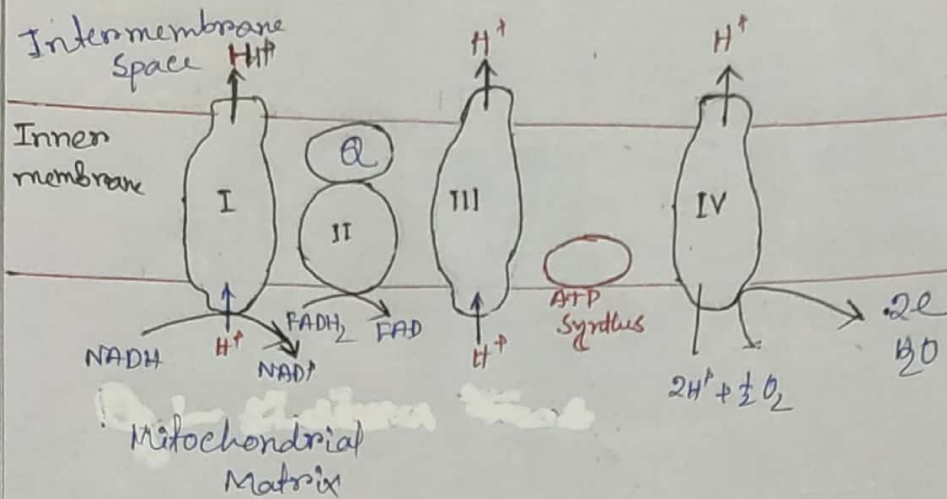 Intermembrane
Space
H+
H+
H+
Inner
membrane
Q
I
II
III
IV
ATP
Synthus
NADH
H+
NAD+
FADH2
FAD
H+
2H+ + ½ O2
2e
H2O
Mitochondrial
Matrix